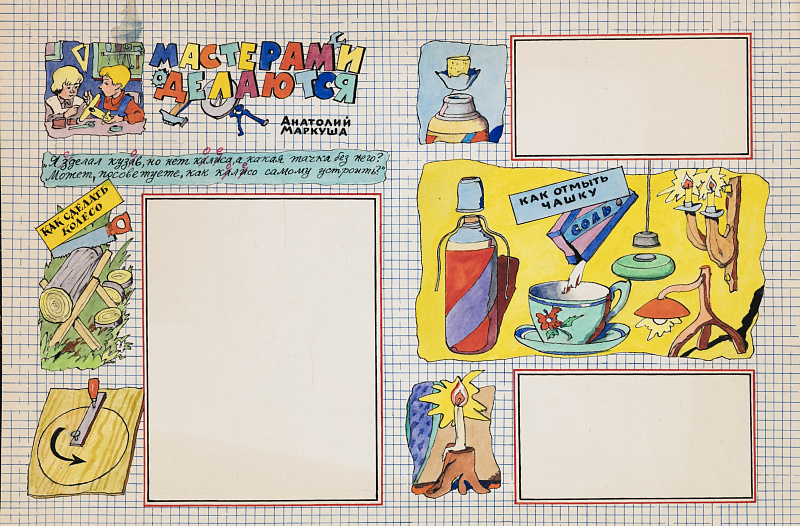 МАСТЕРАМИ
ДЕЛАЮТСЯ
АНАТОЛИЙ
МАРКУША
„Я зделал кузав, но нет калиса, а какая тачка без него?
Может, посоветуете, как калисо самому устроить?"
КАК СДЕЛАТЬ
КОЛЕСО
КАК ОТМЫТЬ
ЧАШКУ
СОЛЬ